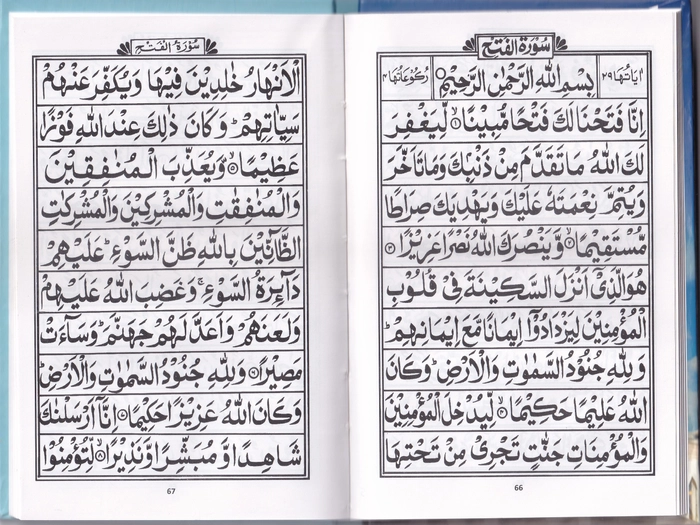 سُوْرَةُ الْفَتْحِ
اٰيَاتُهَا ٢٩
بِسْمِ اللّٰهِ الرَّحْمٰنِ الرَّحِيْمِ
رُكُوْعَاتُهَا ٤
اِنَّا فَتَحْنَا لَكَ فَتْحًا مُّبِيْنًا ۙ﴿١﴾ لِّيَغْفِرَ
لَكَ اللّٰهُ مَا تَقَدَّمَ مِنْ ذَنْۢبِكَ وَمَا تَاَخَّرَ
وَيُتِمَّ نِعْمَتَهٗ عَلَيْكَ وَيَهْدِيَكَ صِرَاطًا
مُّسْتَقِيْمًا ۙ﴿٢﴾ وَّيَنْصُرَكَ اللّٰهُ نَصْرًا عَزِيْزًا ﴿٣﴾
هُوَ الَّذِيْٓ اَنْزَلَ السَّكِيْنَةَ فِيْ قُلُوْبِ
الْمُؤْمِنِيْنَ لِيَزْدَادُوْٓا اِيْمَانًا مَّعَ اِيْمَانِهِمْ ؕ
وَلِلّٰهِ جُنُوْدُ السَّمٰوٰتِ وَالْاَرْضِ ؕ وَكَانَ
اللّٰهُ عَلِيْمًا حَكِيْمًا ۙ﴿٤﴾ لِّيُدْخِلَ الْمُؤْمِنِيْنَ
وَالْمُؤْمِنَاتِ جَنّٰتٍ تَجْرِيْ مِنْ تَحْتِهَا
66
سُوْرَةُ الْفَتْحِ
الْاَنْهَارُ خٰلِدِيْنَ فِيْهَا وَيُكَفِّرَ عَنْهُمْ
سَيِّاٰتِهِمْ ؕ وَكَانَ ذٰلِكَ عِنْدَ اللّٰهِ فَوْزًا
عَظِيْمًا ۙ﴿٥﴾ وَّيُعَذِّبَ الْمُنٰفِقِيْنَ
وَالْمُنٰفِقٰتِ وَالْمُشْرِكِيْنَ وَالْمُشْرِكٰتِ
الظَّآنِّيْنَ بِاللّٰهِ ظَنَّ السَّوْءِ ؕ عَلَيْهِمْ
دَآئِرَةُ السَّوْءِ ۚ وَغَضِبَ اللّٰهُ عَلَيْهِمْ
وَلَعَنَهُمْ وَاَعَدَّ لَهُمْ جَهَنَّمَ ؕ وَسَآءَتْ
مَصِيْرًا ﴿٦﴾ وَلِلّٰهِ جُنُوْدُ السَّمٰوٰتِ وَالْاَرْضِ ؕ
وَكَانَ اللّٰهُ عَزِيْزًا حَكِيْمًا ﴿٧﴾ اِنَّآ اَرْسَلْنٰكَ
شَاهِدًا وَّ مُبَشِّرًا وَّنَذِيْرًا ۙ﴿٨﴾ لِّتُؤْمِنُوْا
67